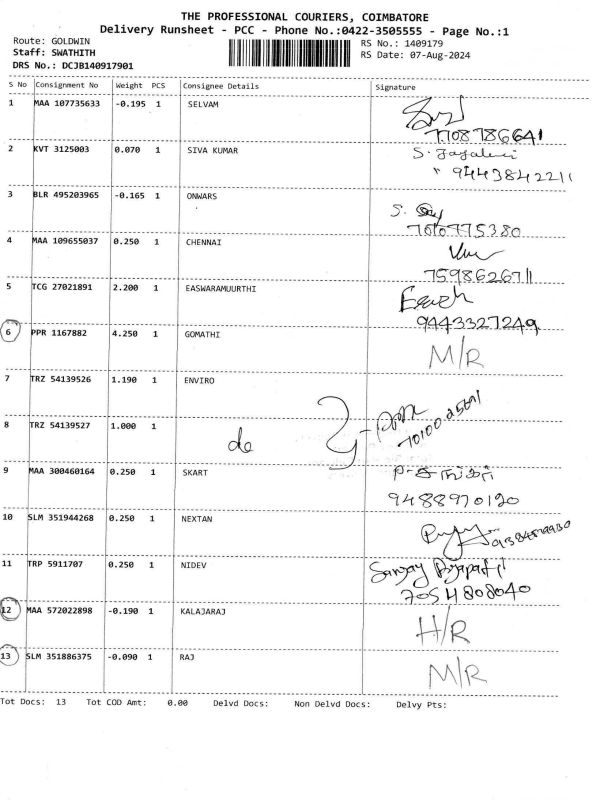 THE PROFESSIONAL COURIERS, COIMBATORE
Delivery Runsheet - PCC - Phone No.:0422-3505555 - Page No.:1
Route: GOLDWIN RS No.: 1409179
Staff: SWATHITH RS Date: 07-Aug-2024
DRS No.: DCJB140917901
S No Consignment No Weight PCS Consignee Details Signature
1 MAA 107735633 -0.195 1 SELVAM
7708786641
2 KVT 3125003 0.070 1 SIVA KUMAR S.
" 9443842211
3 BLR 495203965 -0.165 1 ONWARS S.
7010775380
4 MAA 109655037 0.250 1 CHENNAI
7598626711
5 TCG 27021891 2.200 1 EASWARAMUURTHI
9443327249
6 PPR 1167882 4.250 1 GOMATHI M/R
7 TRZ 54139526 1.190 1 ENVIRO
8 TRZ 54139527 1.000 1 do
9 MAA 300460164 0.250 1 SKART
9488970120
10 SLM 351944268 0.250 1 NEXTAN
11 TRP 5911707 0.250 1 NIDEV Sanjay
7054808040
12 MAA 572022898 -0.190 1 KALAJARAJ H/R
13 SLM 351886375 -0.090 1 RAJ M/R
Tot Docs: 13 Tot COD Amt: 0.00 Delvd Docs: Non Delvd Docs: Delvy Pts: